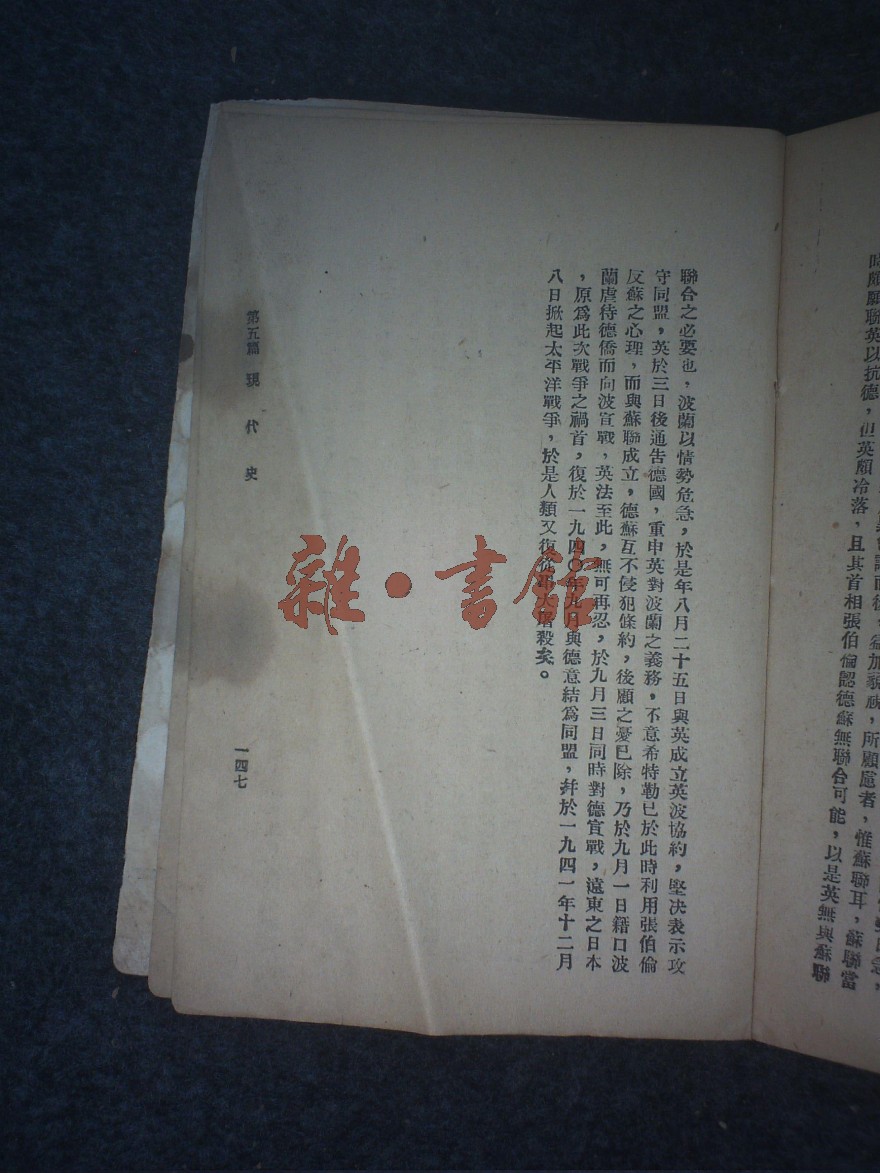 時頗願聯英以抗德，但英頗冷落，且其首相張伯倫認德蘇無聯合可能，以是英無與蘇聯
聯合之必要也，波蘭以情勢危急，於是年八月二十五日與英成立英波協約，堅决表示攻
守同盟，英於三日後通告德國，重申英對波蘭之義務，不意希特勒已於此時利用張伯倫
反蘇之心理，而與蘇聯成立，德蘇互不侵犯條約，後顧之憂已除，乃於九月一日藉口波
蘭虐待德僑而向波宣戰，英法至此，無可再忍，於九月三日同時對德宣戰，遠東之日本
，原爲此次戰爭之禍首，復於一九四〇年九月與德意結爲同盟，幷於一九四一年十二月
八日掀起太平洋戰爭，於是人類又復從事大屠殺矣。
第五篇 現代史
一四七
雜·書館